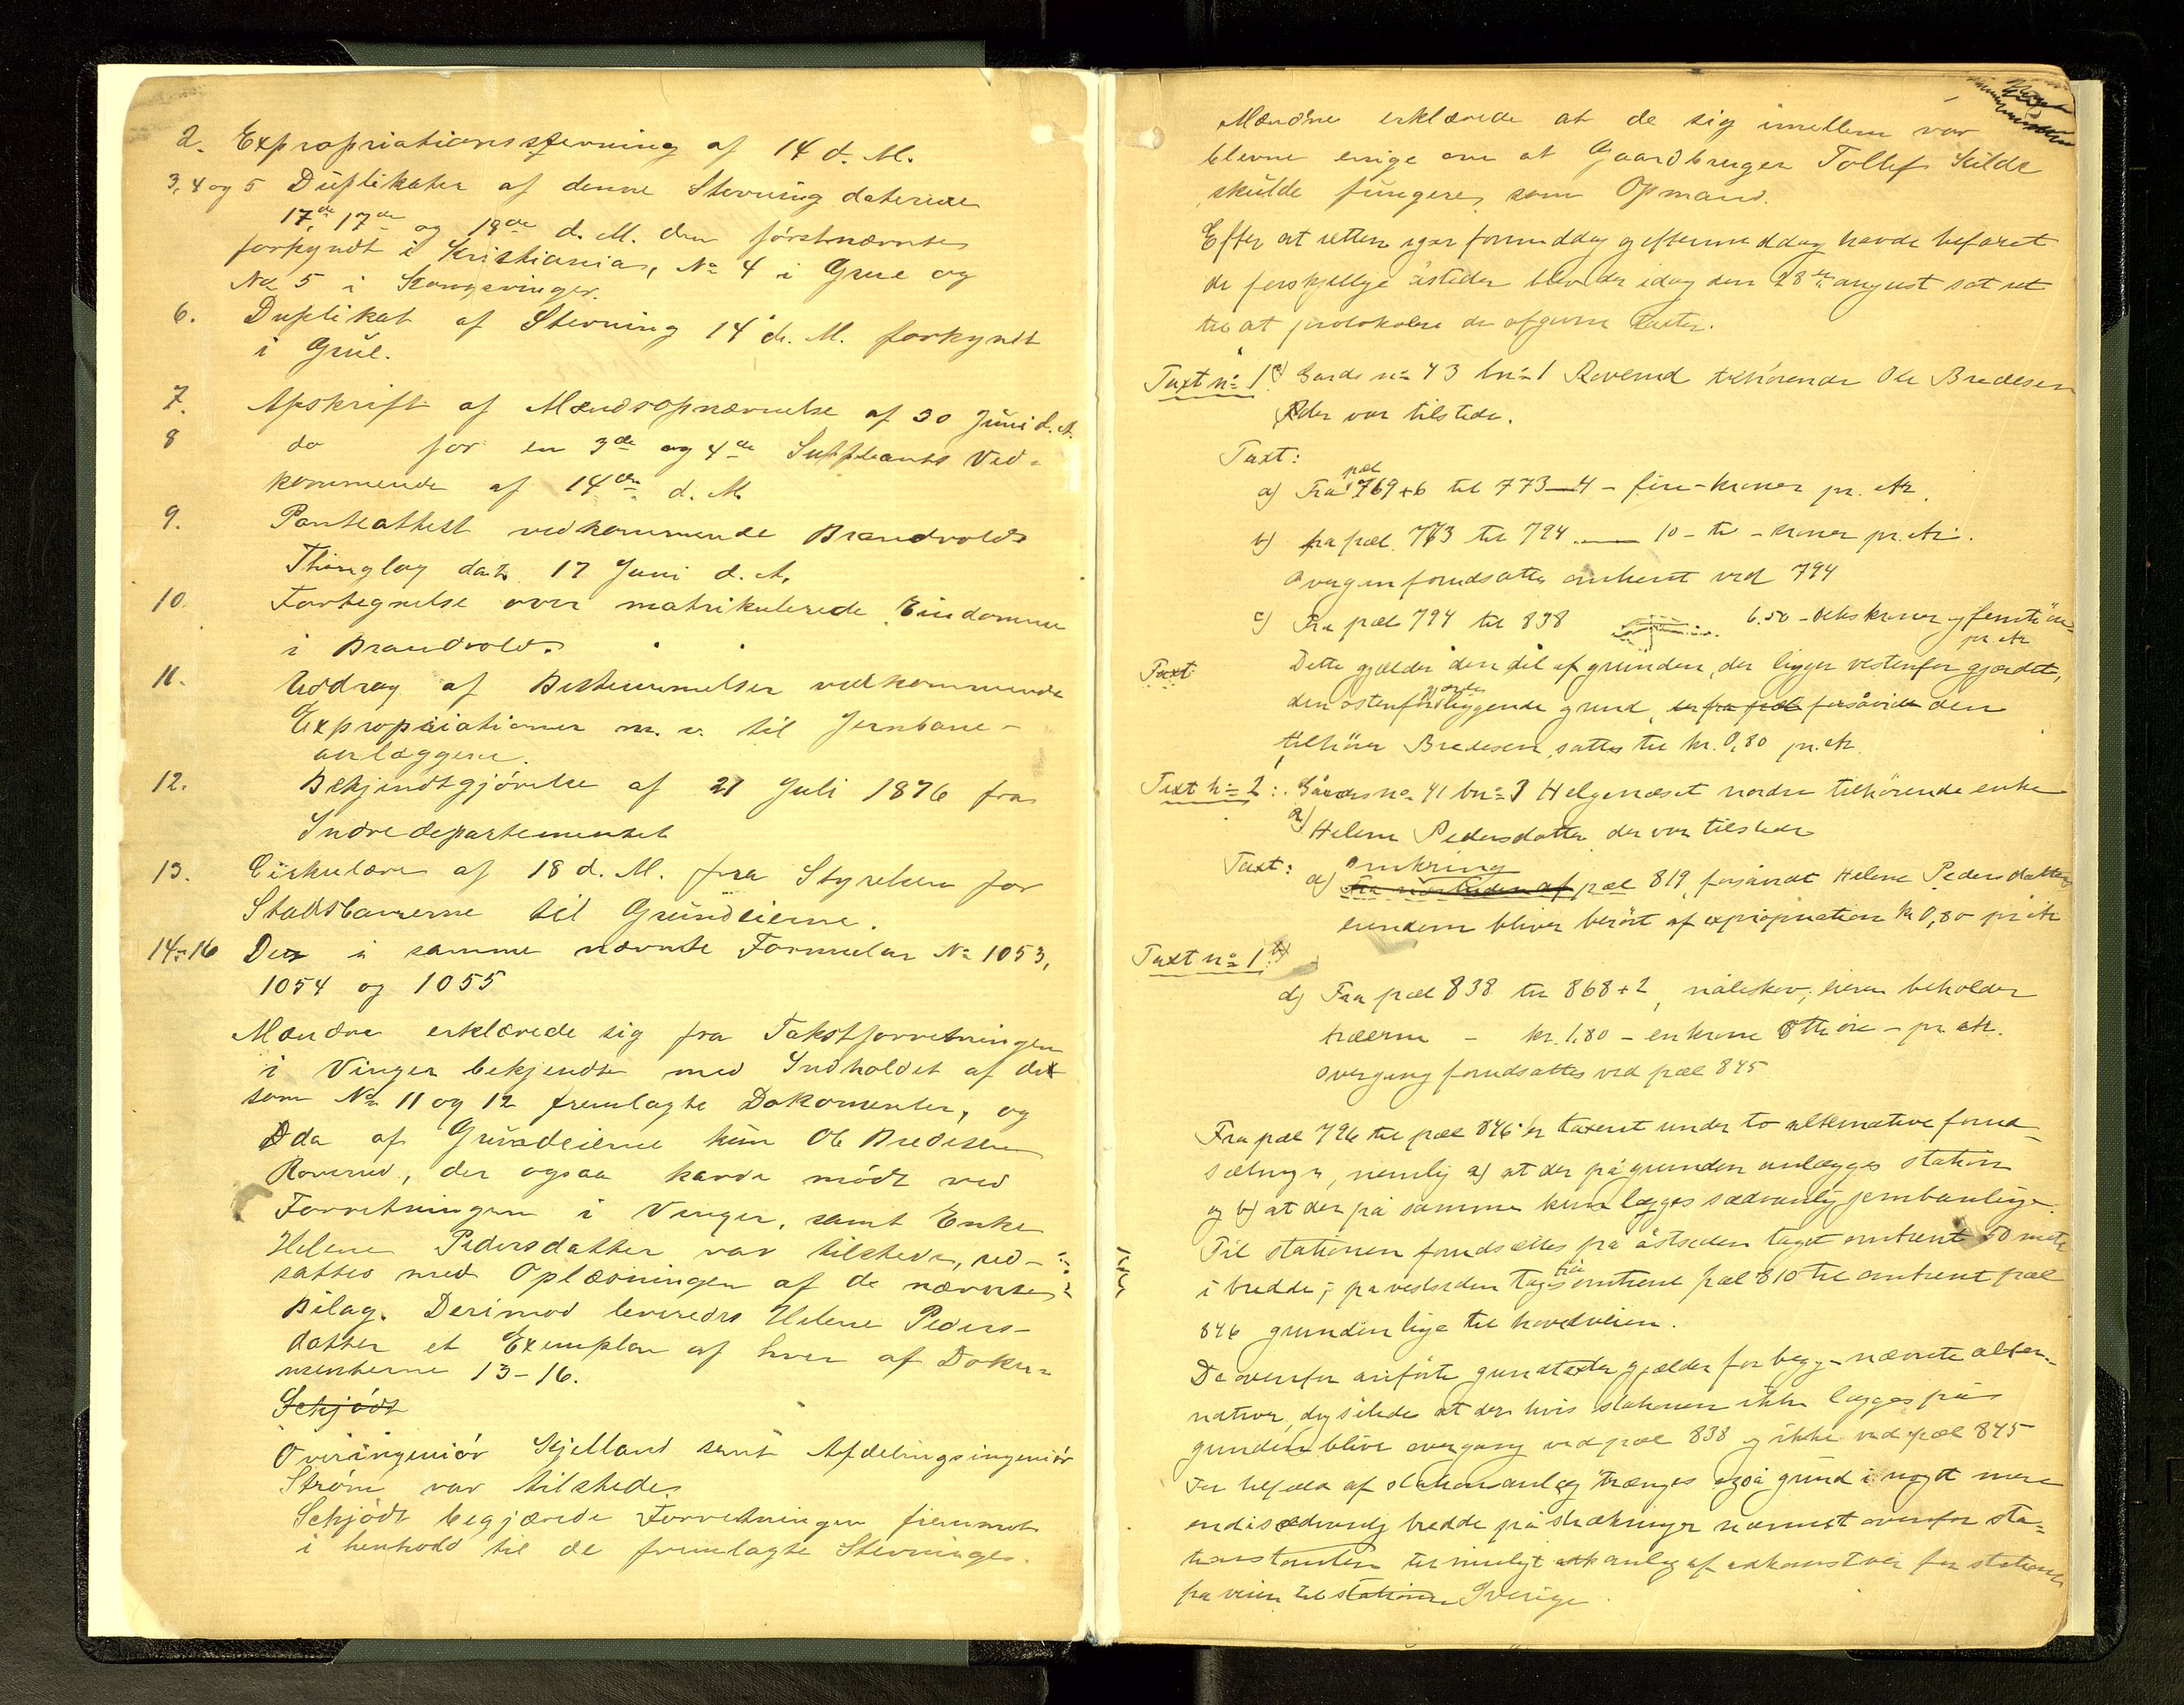 2. Expropriationsstevning af 14 d. M.
3, 4 og 5 Duplikater af denne Stevning daterede
17de, 17de og 18de d. M. den förstnævnte
forkyndt i Kristiania, No 4 i Grue og
No 5 i Kongsvinger.
6. Duplikat af Stevning 14 d. M. forkyndt
i Grue.
7. Afskrift af Mændsopnævnelse af 30 Juni d. A.
8 do for en 3de og 4de Suppleants Ved=
kommende af 14de d. M.
9. Panteattest vedkommende Brandvolds
Thinglag dat. 17 Juni d. A.
10. Fortegnelse over matrikulerede Eiendomme
i Brandvold.
11. Uddrag af Bestemmelser vedkommende
Expropriationer m. v. til Jernbane-
anlæggene.
12. Bekjendtgjörelse af 21 Juli 1876 fra
Indredepartementet
13. Cirkulære af 18 d. M. fra Styrelsen for
Statsbanerne til Grundeierne.
14-16 De i samme nævnte Formular No 1053,
1054 og 1055
Mændne erklærede sig fra Takstforretningen
i Vinger bekjendte med Indholdet af de
som No 11 og 12 fremlagte Dokumenter, og
da af Grundeierne kun Ole Bredesen
Roverud, der ogsaa havde mödt ved
Forretningen i Vinger, samt Enke
Helene Pedersdatter var tilstede, ud-
sattes med Oplæsningen af de nævnte
Bilag. Derimod leveredes Helene Peders-
datter et Exemplar af hver af Doku-
menterne 13-16.
Schjödt
Overingeniör Kjelland samt Afdelingsingeniör
Ström var tilstede.
Schjödt begjærede Forretningen fremmet
i henhold til de fremlagte Stevninger.
Mændne erklærede at de sig imellem var
blevne enige om at Gaardbruger Tollef Kilde
skulde fungere som Opmand.
Efter at retten igår formiddag og eftermiddag havde befaret
de forskjellige åsteder blev der idag den 28de august sat ret
til at protokolere de afgivne taxter.
Taxt no 1 a) Gards no 43 bno 1 Roverud tilhörende Ole Bredesen
der var tilstede.
Taxt:
a) Fra pæl 769+6 til 773 — 4 - fire - kroner pr. Ar.
b) fra pæl 773 til 794 — 10 - ti - kroner pr. Ar.
Overgang forudsættes omtrent ved 794
c) Fra pæl 794 til 838 6.50 - seks kroner og femti öre
pr. Ar
Taxt
Dette gjælder den del af grunden, der ligger vestenfor gjærdet,
den östenfor gjærdet liggende grund, den
tilhörer Bredesen, sættes til kr. 0,80 pr. Ar.
Taxt no 2: Gårds no 41 bno 3 Helgenæset nordre tilhörende enke
Helene Pedersdatter, der var tilstede
Taxt:
a) Omkring pæl 819, forsåvidt Helene Pedersdatters
eiendom bliver berört af expropriation kr 0,80 pr Ar
Taxt no 1 b)
d) Fra pæl 838 til 868+2, nåleskov, eieren beholder
træerne - kr. 1,80 - en krone åtti öre - pr. Ar.
Overgang forudsættes ved pæl 845
Fra pæl 796 til pæl 846 er taxeret under to alternative forud-
sætninger, nemlig a) at der på grunden anlægges station
og b) at der på samme kun lægges sædvanlig jernbanelinje.
Til stationen forudsættes på östsiden taget omtrent 50 meter
i bredde; på vestsiden tages fra omtrent pæl 810 til omtrent pæl
846 grunden lige til hovedveien.
De ovenfor anförte grundtaxter gjælder for begge nævnte alter-
nativer, dog således at der hvis stationen ikke lægges på
grunden bliver overgang ved pæl 838 og ikke ved pæl 845
For tilfælde af stationsanlæg trænges også grund i noget mere
end sædvanlig bredde på strækninger nærmest ovenfor sta=
tionstomten til muligt anlæg af adkomstvei for stationen
fra veien til stationen Sverige.